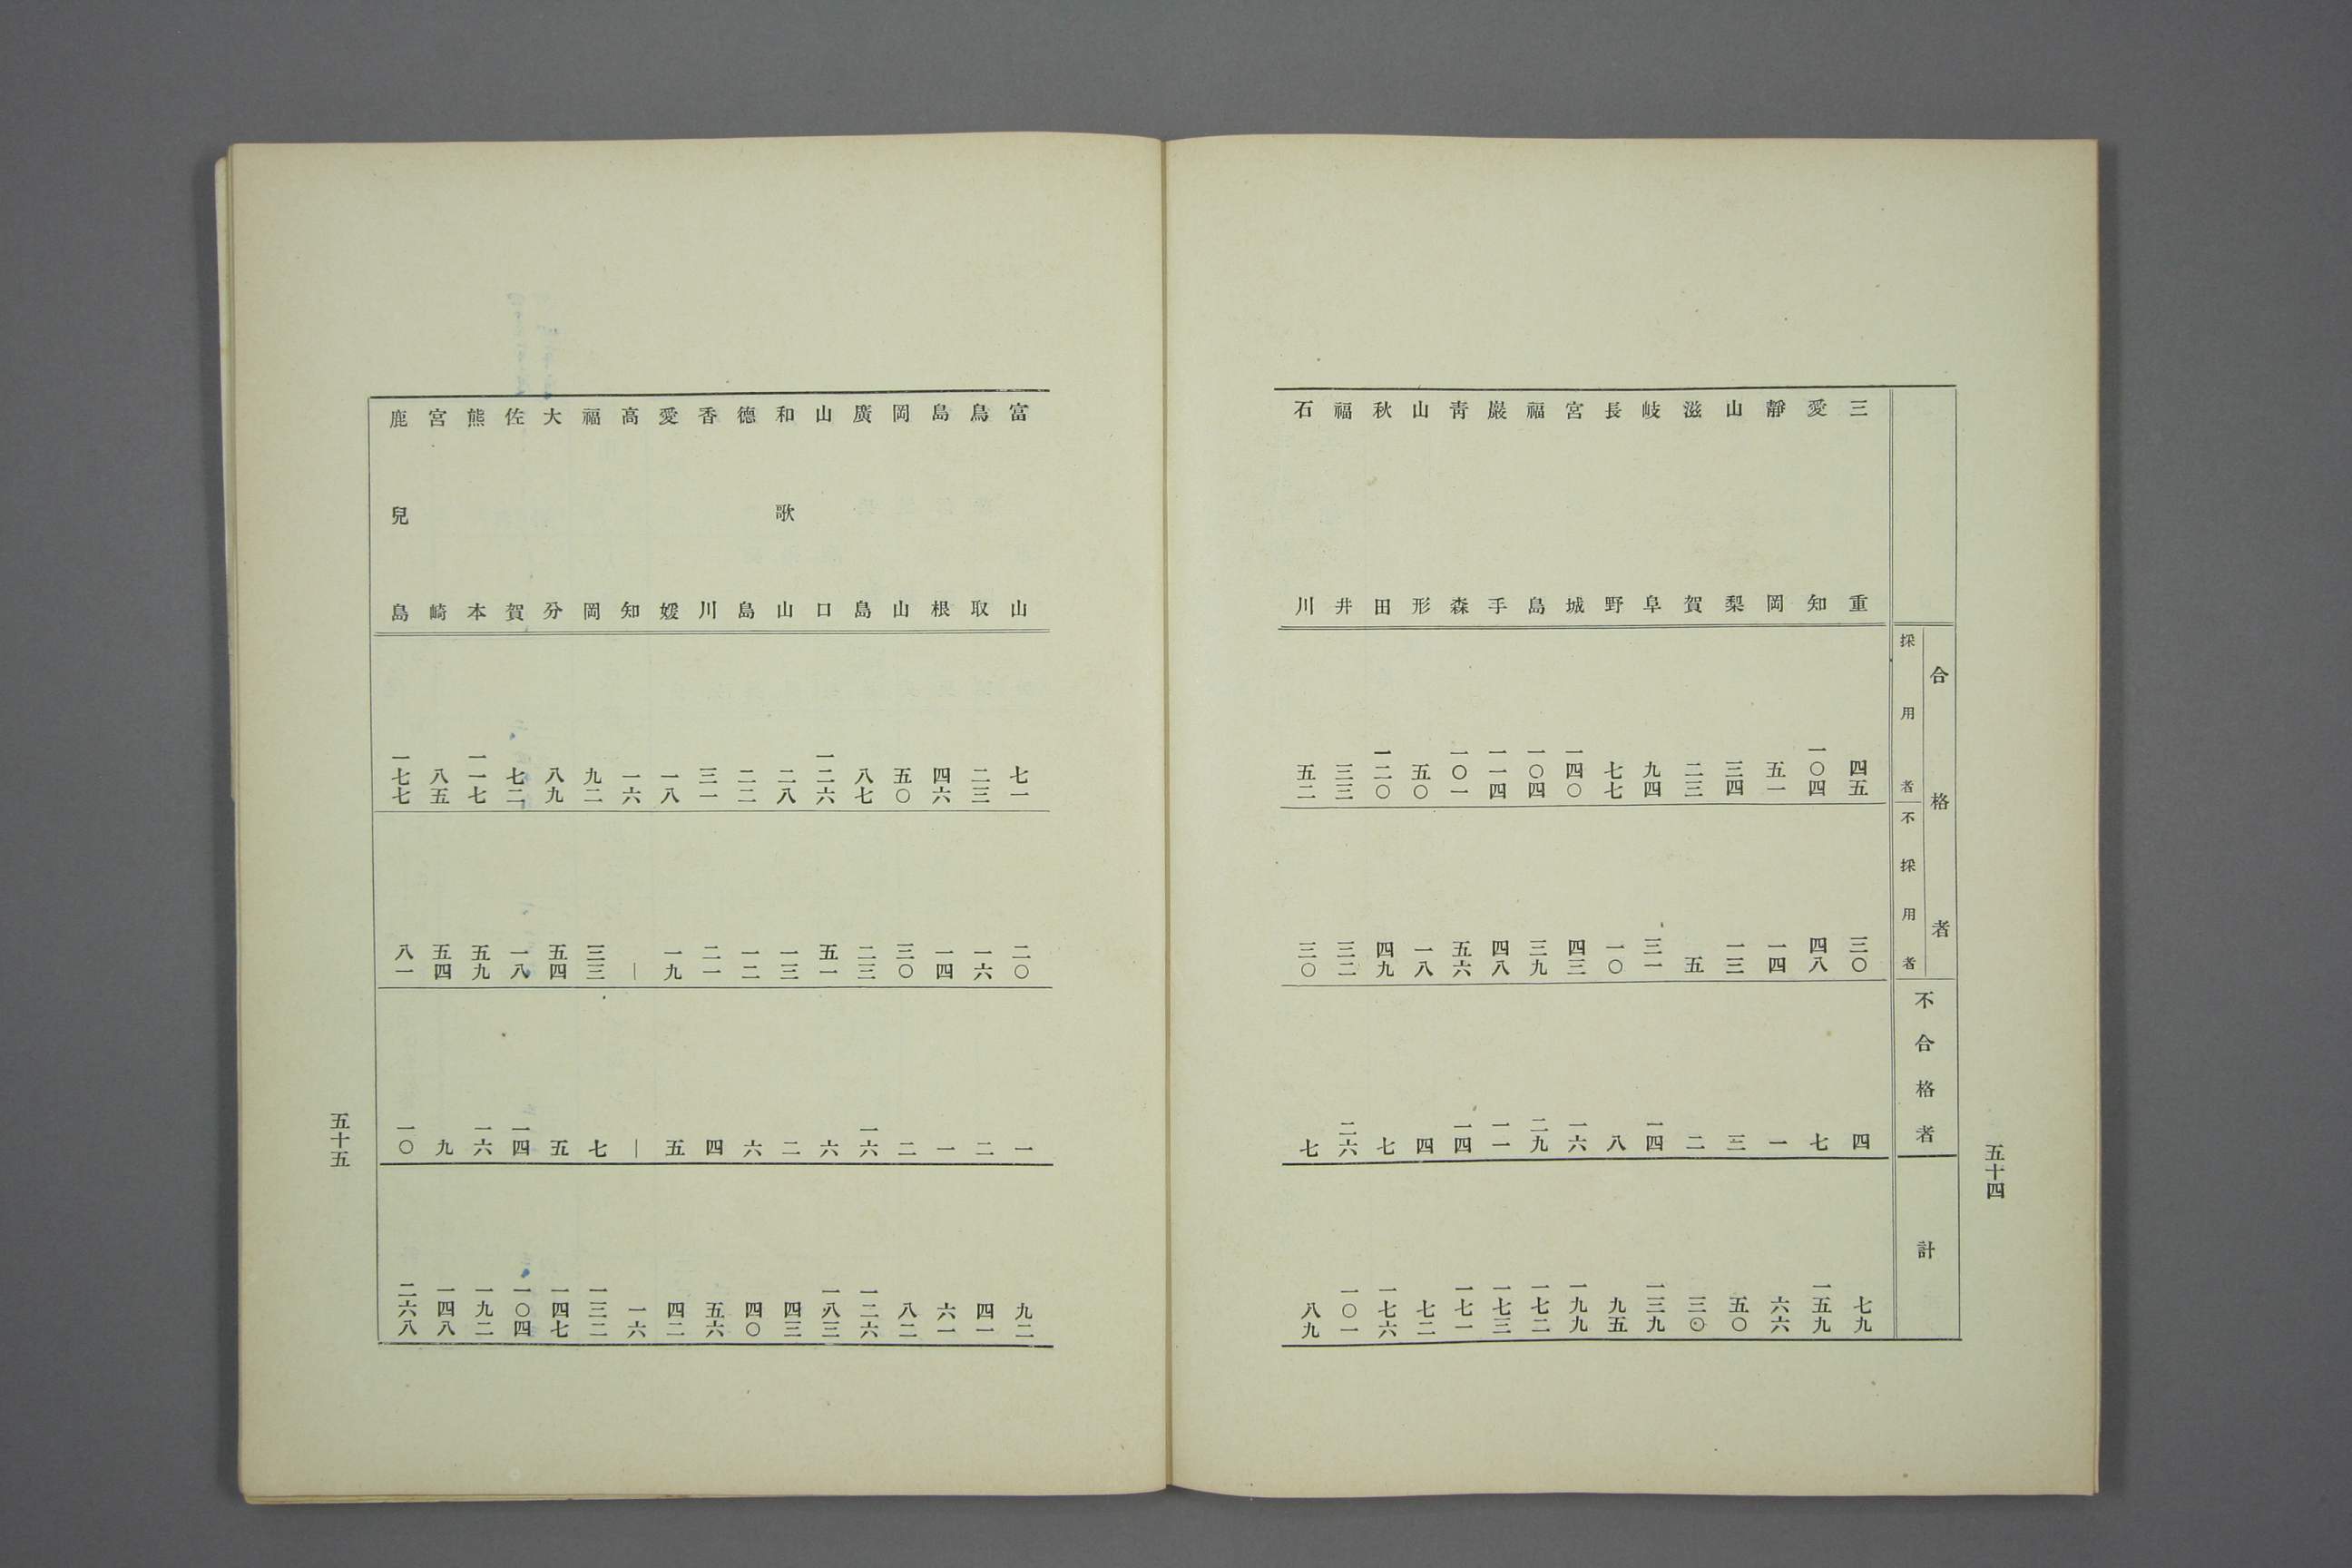 五十四
合格者
採用者
不採用者
不合格者
計
三重 四五 三〇 四 七九
愛知 一〇四 四八 七 一五九
靜岡 五一 一四 一 六六
山梨 三四 一三 三 五〇
滋賀 二三 五 二 三〇
岐阜 九四 三一 一四 一三九
長野 七七 一〇 八 九五
宮城 一四〇 四三 一六 一九九
福島 一〇四 三九 二九 一七二
巌手 一一四 四八 一一 一七三
靑森 一〇一 五六 一四 一七一
山形 五〇 一八 四 七二
秋田 一二〇 四九 七 一七六
福井 三三 三二 二六 一〇一
石川 五二 三〇 七 八九
富山 七一 二〇 一 九二
鳥取 二三 一六 二 四一
島根 四六 一四 一 六一
岡山 五〇 三〇 二 八二
廣島 八七 二三 一六 一二六
山口 一二六 五一 六 一八三
和歌山 二八 一三 二 四三
德島 二二 一二 六 四〇
香川 三一 二一 四 五六
愛媛 一八 一九 五 四二
高知 一六 ｜ ｜ 一六
福岡 九二 三三 七 一三二
大分 八九 五四 五 一四七
佐賀 七二 一八 一四 一〇四
熊本 一一七 五九 一六 一九二
宮崎 八五 五四 九 一四八
鹿兒島 一七七 八一 一〇 二六八
五十五